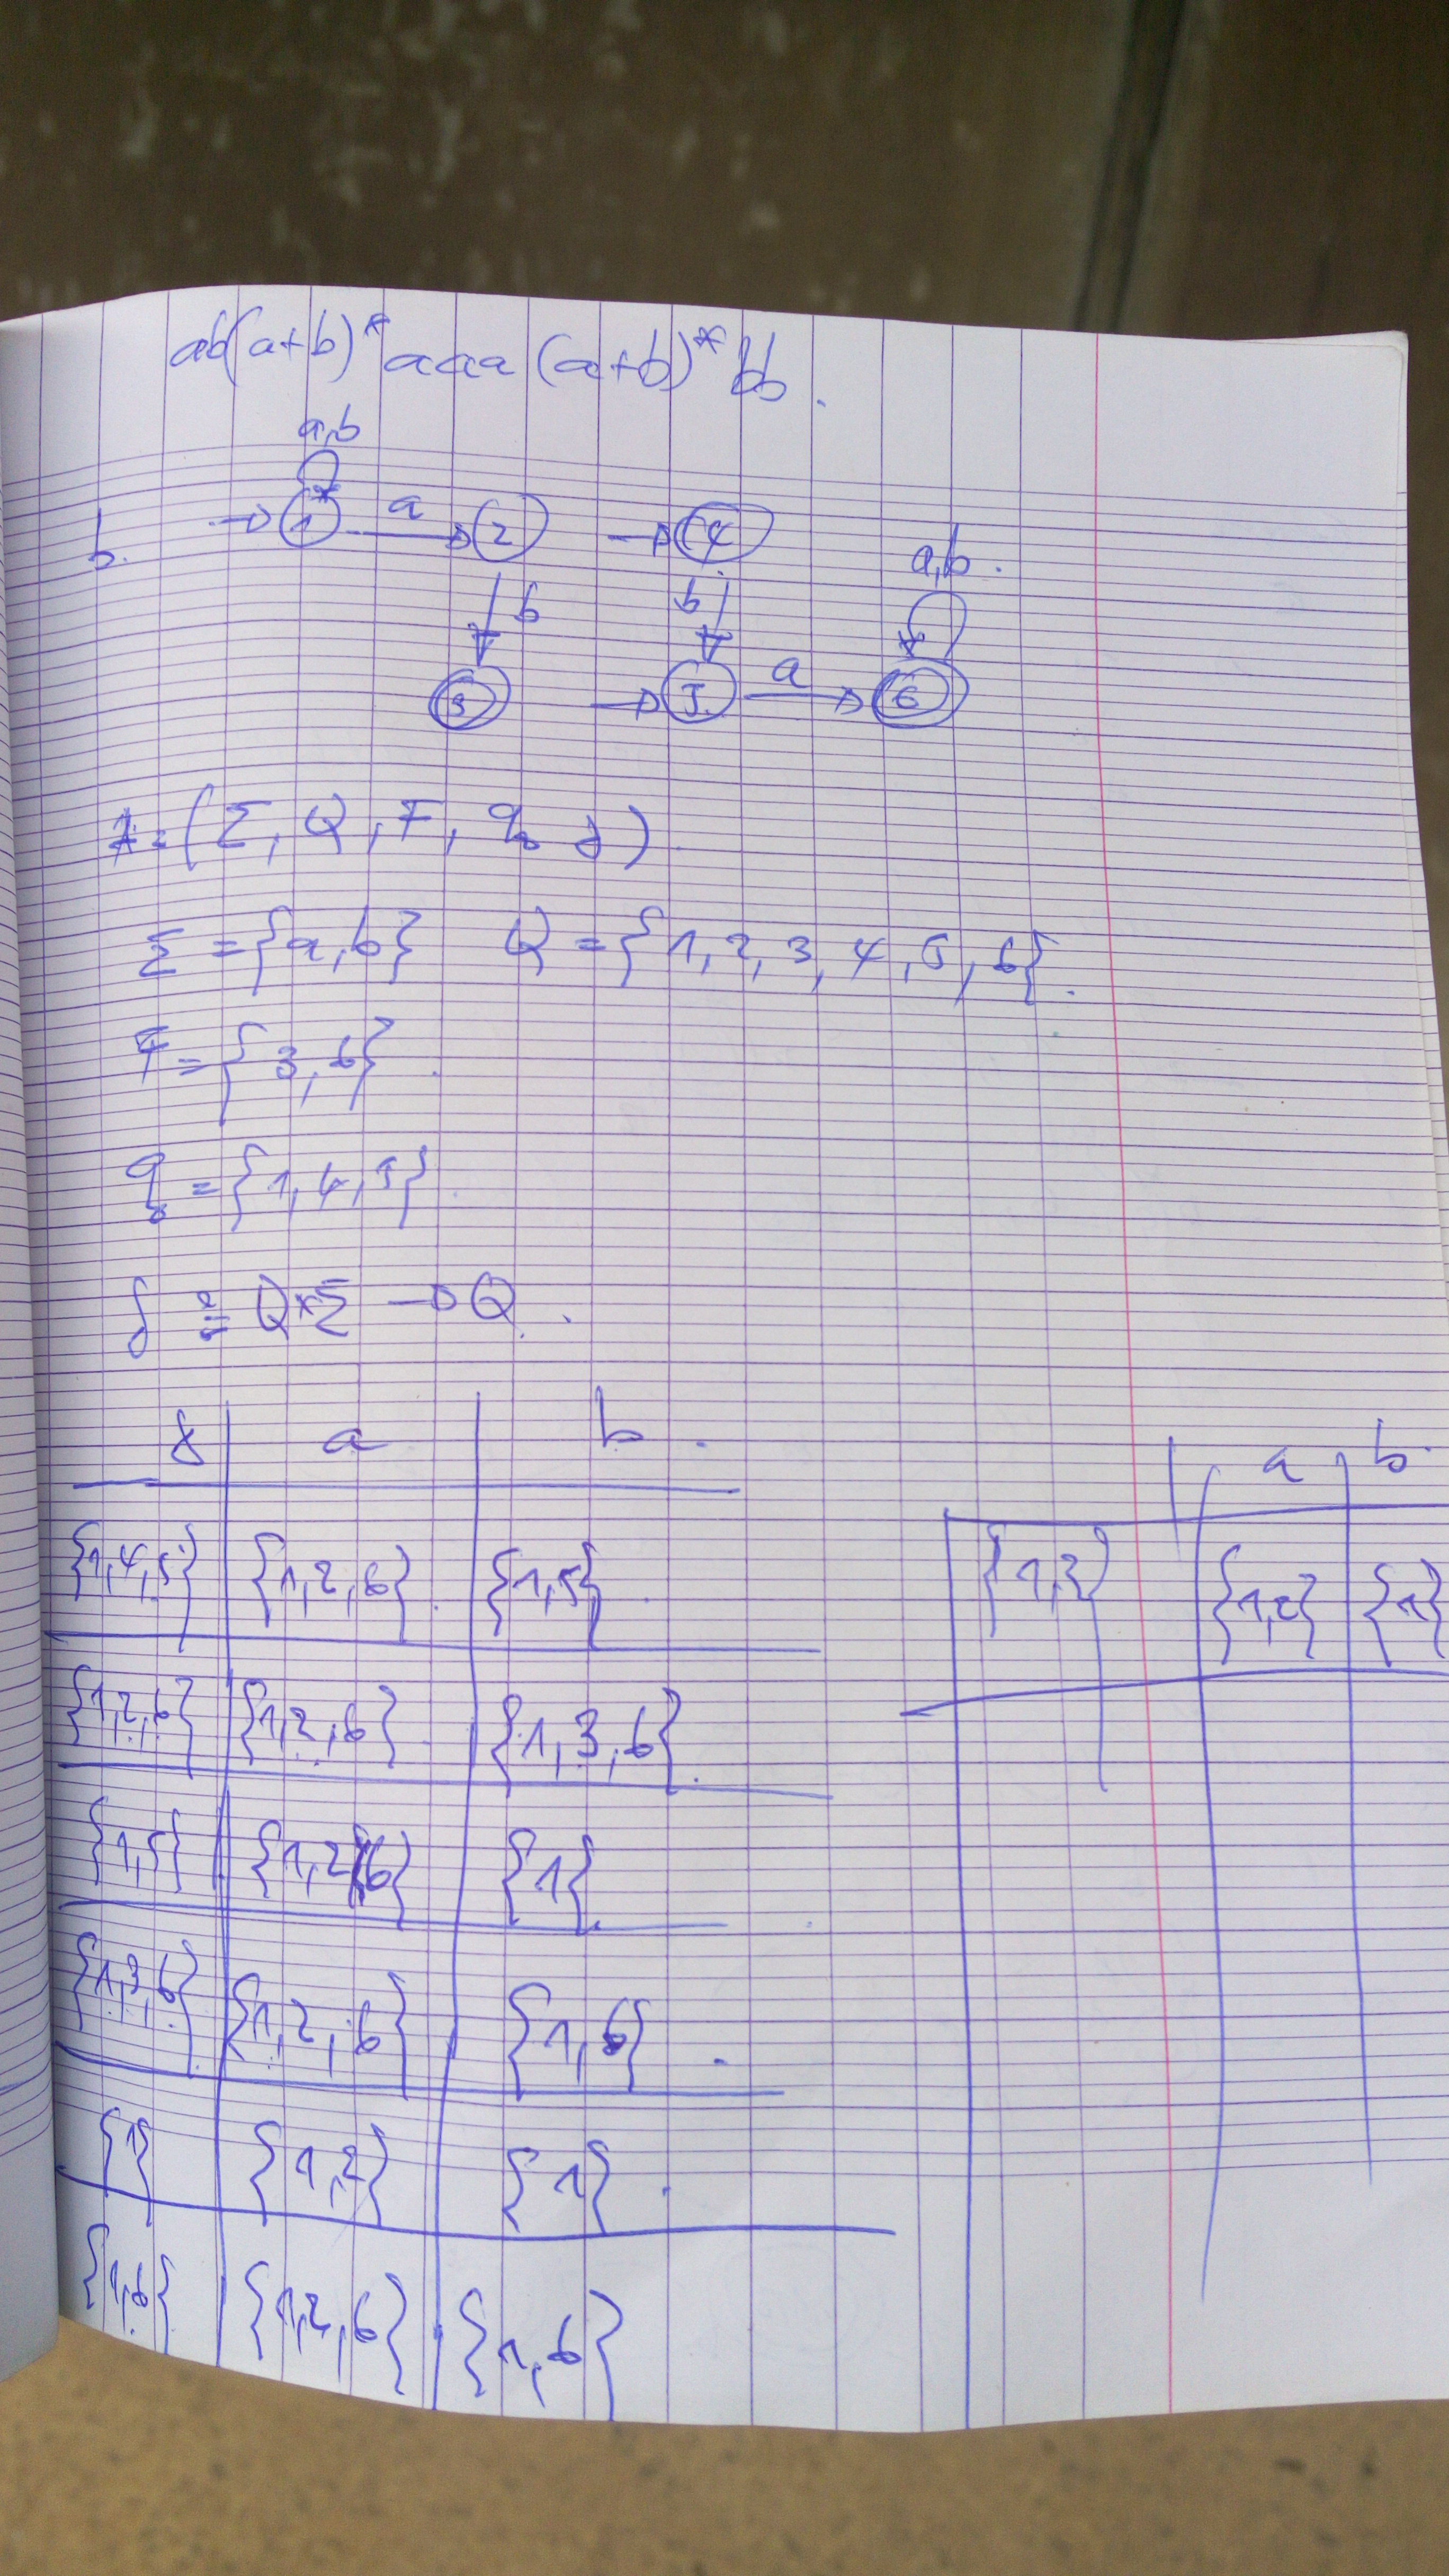 ab(a+b)* aaa (a+b)* bb.
a,b
b. → 1 a → 2 → 4
a,b.
b b
3 → 5. a → 6
A = (Σ, Q, F, q₀ δ)
Σ = {a,b} Q = {1, 2, 3, 4, 5, 6}.
F = {3, 6}.
q₀ = {1, 4, 5}.
δ : Q×Σ → Q.
δ a b.
{1,4,5} {1,2,6}. {1,5}.
{1,2,6} {1,2,6}. {1,3,6}.
{1,5} {1,2,6} {1}.
{1,3,6} {1,2,6} {1,6}.
{1} {1,2} {1}.
{1,6} {1,2,6}. {1,6}
a b.
{1,3} {1,2} {1}